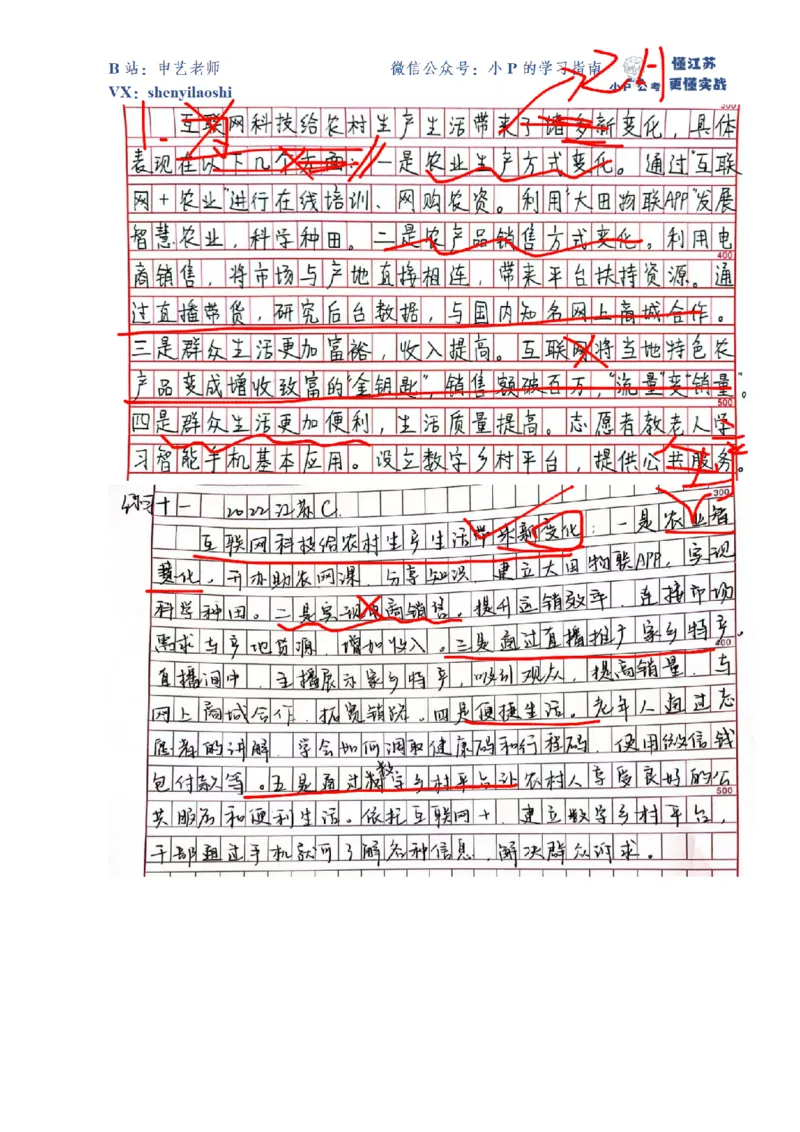 B 站：申艺老师 微信公众号：小 P 的学习指南 小P公考 懂江苏
VX：shenyilaoshi 更懂实战
互联网科技给农村生产生活带来了诸多新变化，具体
表现在以下几个方面：一是农业生产方式变化。通过"互联
网+农业"进行在线培训、网购农资。利用"大田物联APP"发展
智慧农业，科学种田。二是农产品销售方式变化。利用电
400
商销售，将市场与产地直接相连，带来平台扶持资源。通
过直播带货，研究后台数据，与国内知名网上商城合作。
三是群众生活更加富裕，收入提高。互联网将当地特色农
产品变成增收致富的"金钥匙"，销售额破百万，"流量"变"销量"。
500
四是群众生活更加便利，生活质量提高。志愿者教老人学
习智能手机基本应用。设立数字乡村平台，提供公共服务。
300
十一 2022江苏C
互联网科技给农村生产生活带来新变化：一是农业智
慧化，开办助农网课，分享知识，建立大田物联APP，实现
科学种田。二是实现电商销售。提升运销效率，连接市场
需求与产地货源，增加收入。三是通过直播推广家乡特产，
400
直播间中，主播展示家乡特产，吸引观众，提高销量，与
网上商城合作，拓宽销路。四是便捷生活。老年人通过志
愿者的讲解，学会如何调取健康码和行程码，使用微信钱
包付款等。五是通过数字乡村平台让农村人享受良好的公
500
共服务和便利生活。依托互联网+，建立数字乡村平台，
干部通过手机就可了解各种信息，解决群众诉求。